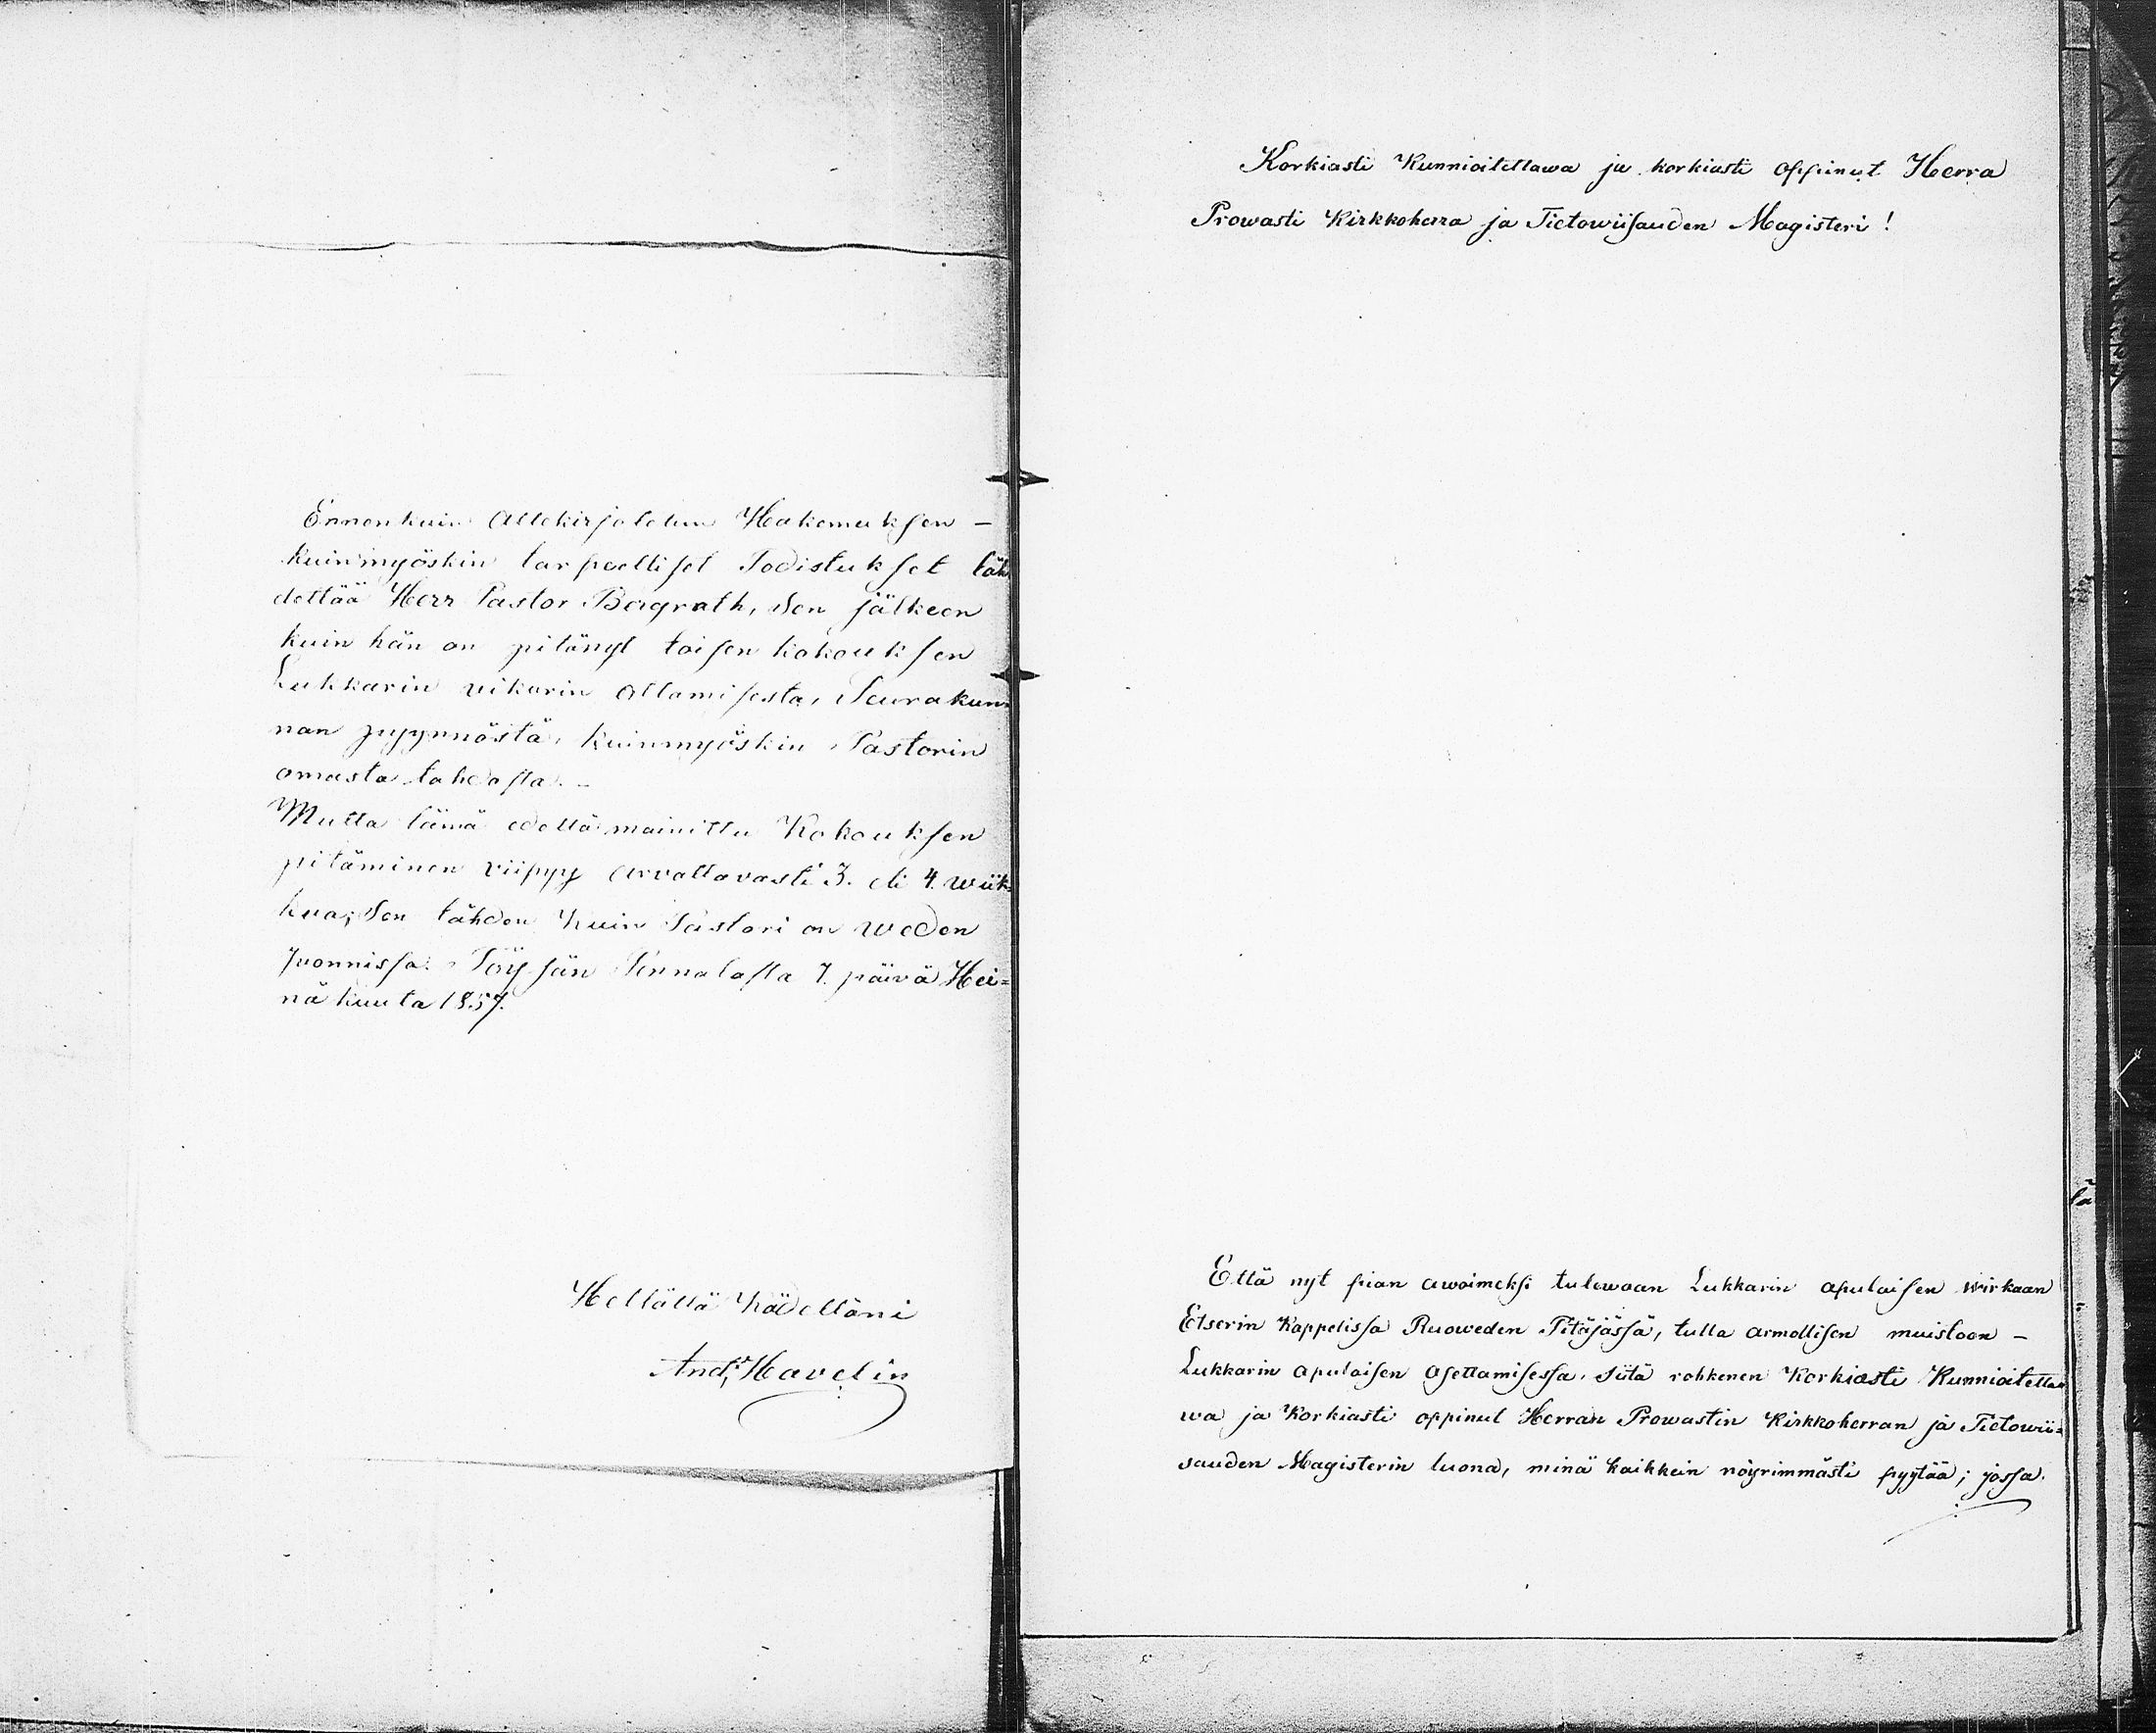 Ennenkuin Allekirjoitetun Hakemuksen —
kuinmyöskin tarpeelliset Todistukset läh
dettää Herr Pastor Bergroth, Sen jälkeen
kuin hän on pitänyt toisen kokouksen
Lukkarin vikarin ottamisesta, Seurakun=
nan pyynnöstä, kuinmyöskin Pastorin
omasta tahdosta. —
Mutta tämä edellämainittu Kokouksen
pitäminen viipyy Arvattavasti 3. eli 4. wiik=
kua; Sen tähden kuin Pastori on weden
Juonnissa. Töysän Pennalasta 7. päivä Hei=
näkuuta 1857.
Hellällä kädelläni
And. Havelin
Korkiasti Kunnioitettawa ja korkiasti oppinut Herra
Prowasti Kirkkoherra ja Tietowiisauden Magisteri!
Että nyt pian awoimeksi tulewaan Lukkarin apulaisen wirkaan
Etserin Kappelissa Ruoweden Pitäjässä, tulla armollisen muistoon —
Lukkarin apulaisen asettamisessa, siitä rohkenen Korkiasti Kunnioitetta=
wa ja Korkiasti oppinut Herran Prowastin Kirkkoherran ja Tietowii=
sauden Magisterin luona, minä kaikkein nöyrimmästi pyytää; jossa.